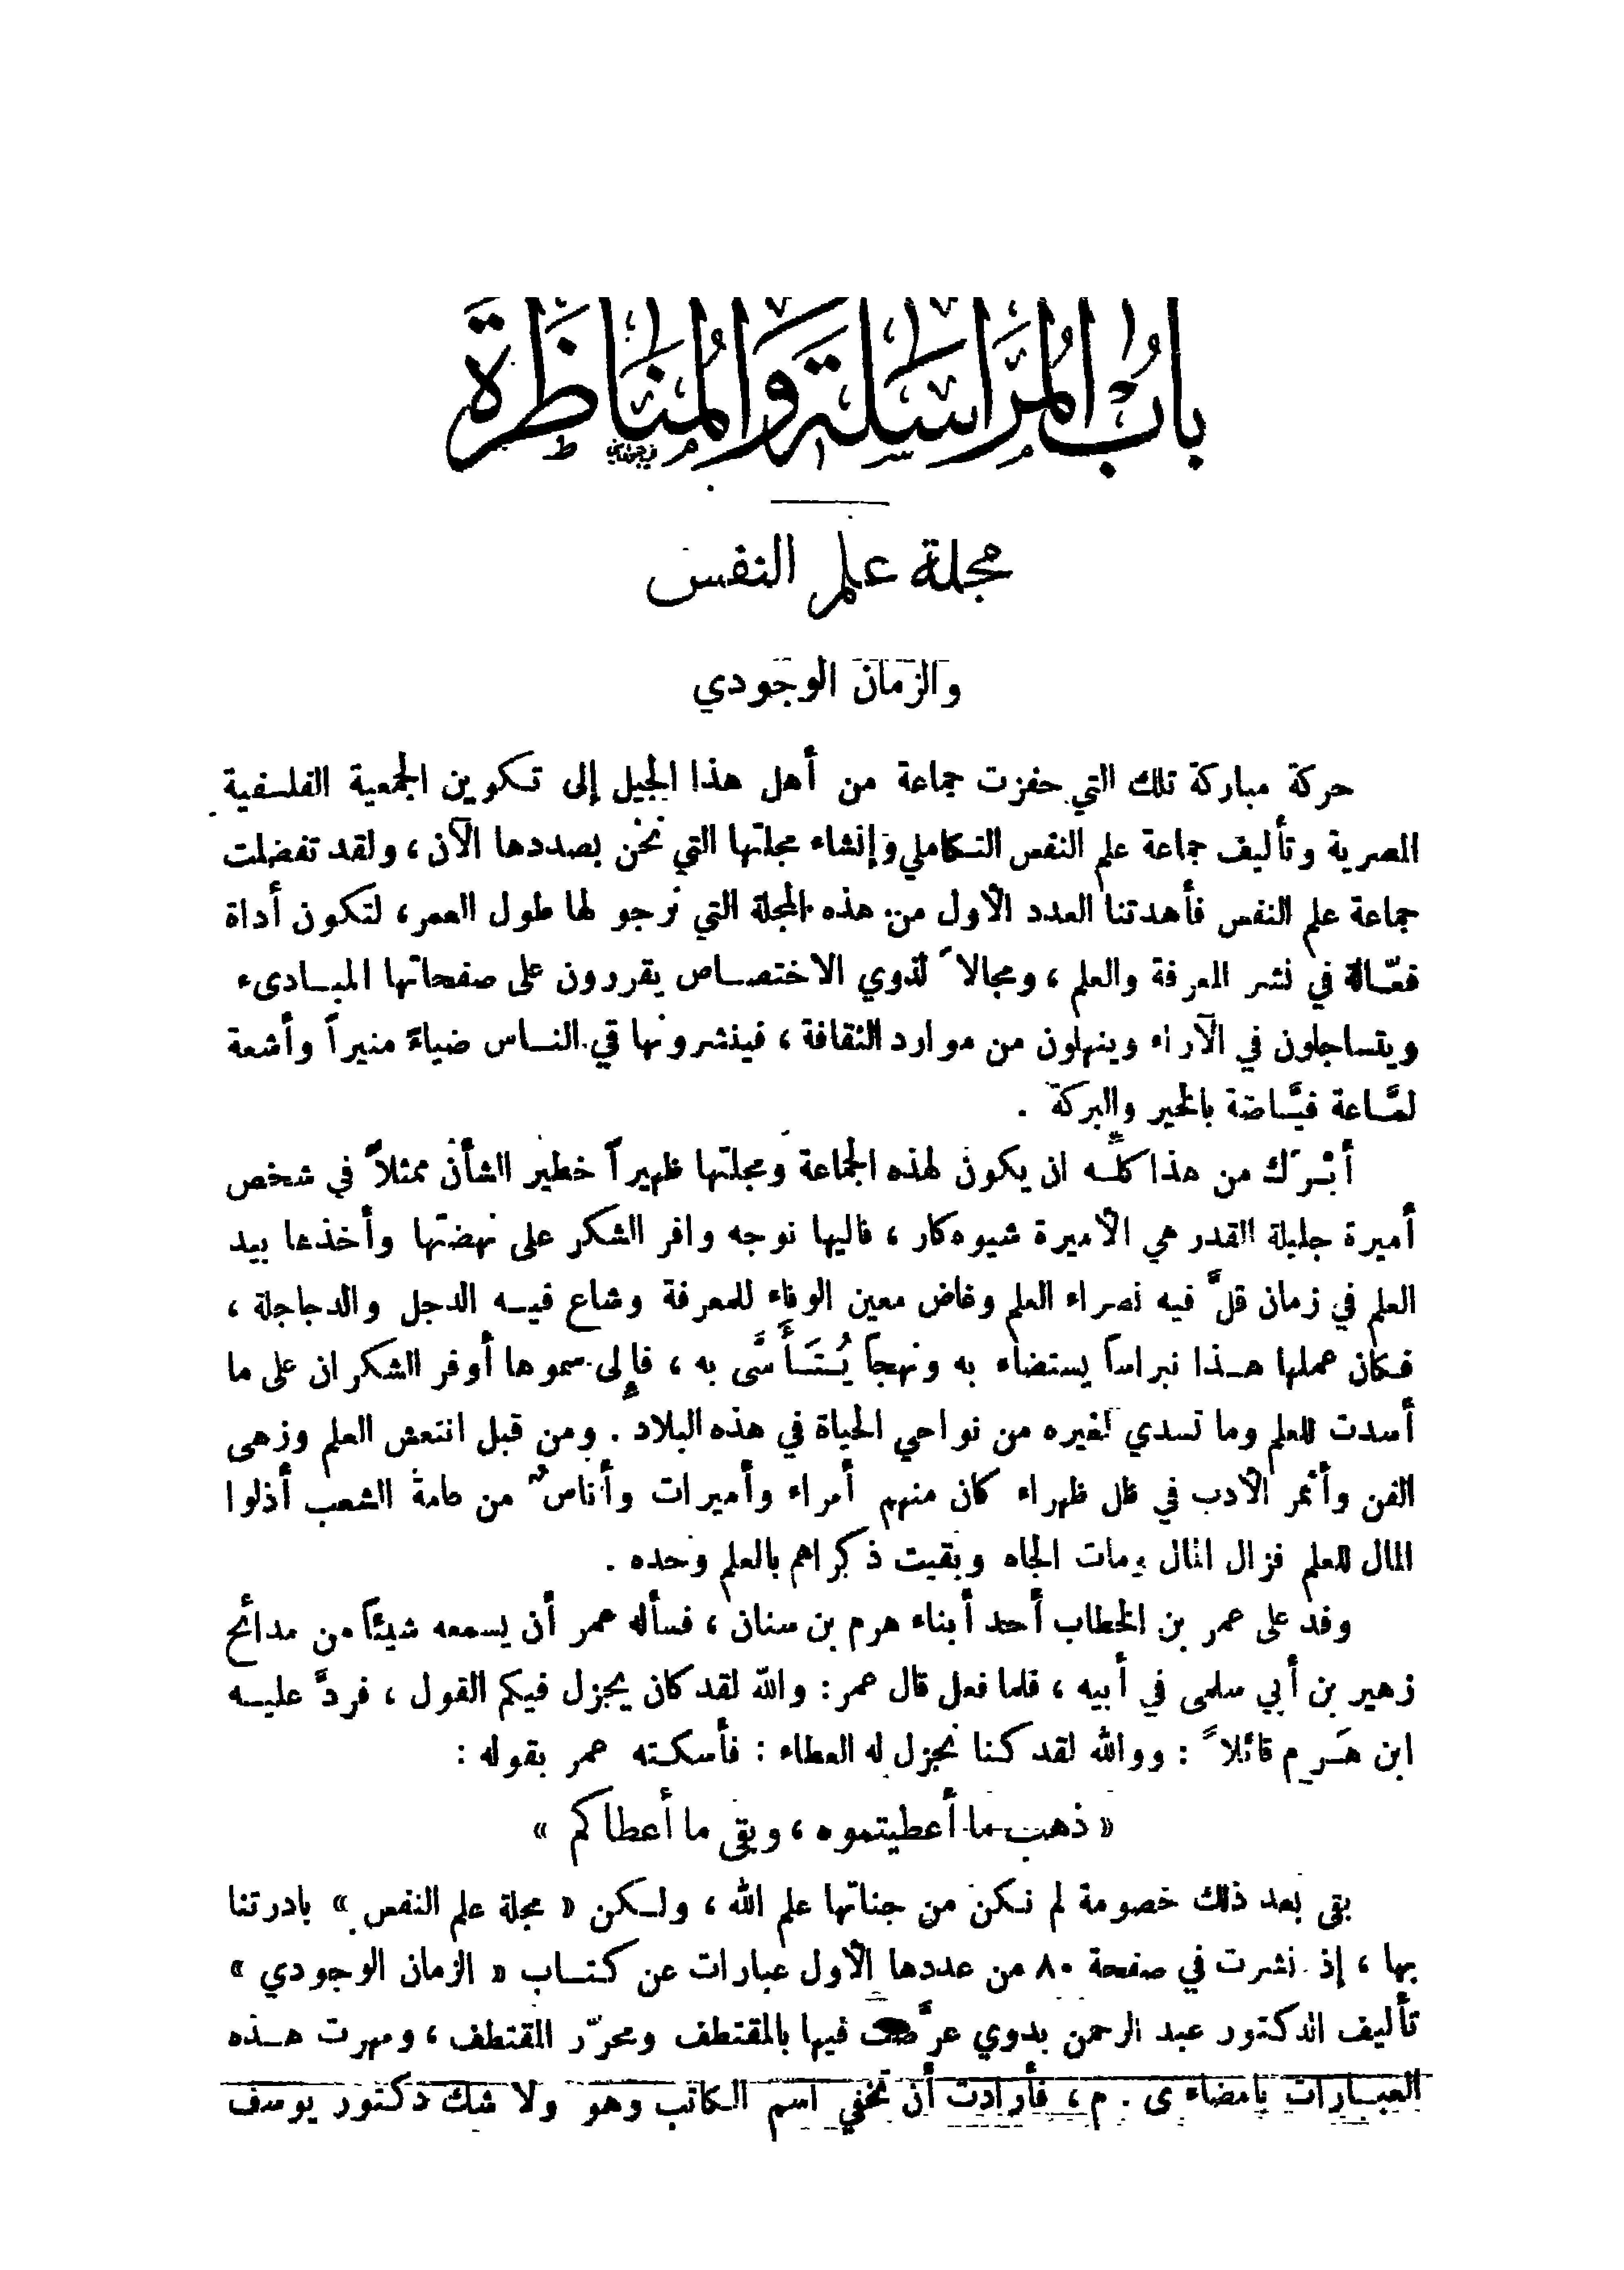 بابُ المُرَاسَلَة وَالمُنَاظَرَة
مجلة علم النفس
والزمان الوجودي
حركة مباركة تلك التي حفزت جماعة من أهل هذا الجيل إلى تكوين الجمعية الفلسفية
المصرية وتأليف جماعة علم النفس التكاملي وإنشاء مجلتها التي نحن بصددها الآن ، ولقد تفضلت
جماعة علم النفس فأهدتنا العدد الأول من هذه المجلة التي نرجو لها طول العمر ، لتكون أداة
فعّالة في نشر المعرفة والعلم ، ومجالاً لذوي الاختصاص يقررون على صفحاتها المبادىء
ويتساجلون في الآراء وينهلون من موارد الثقافة ، فينشرونها في الناس ضياءً منيراً وأشعة
لمَّاعة فيَّاضة بالخير والبركة .
أبْرَك من هذا كلّه ان يكون لهذه الجماعة ومجلتها ظهيراً خطير الشأن ممثلاً في شخص
أميرة جليلة القدر هي الأميرة شيوه كار ، فاليها نوجه وافر الشكر على نهضتها وأخذها بيد
العلم في زمان قلَّ فيه نصراء العلم وغاض معين الوفاء للمعرفة وشاع فيه الدجل والدجاجلة ،
فكان عملها هذا نبراساً يستضاء به ونهجاً يُتَأَسَّى به ، فإلى سموها أوفر الشكران على ما
أسدت للعلم وما تسدي لغيره من نواحي الحياة في هذه البلاد . ومن قبل انتعش العلم وزهى
الفن وأثمر الأدب في ظل ظهراء كان منهم أمراء وأميرات وأناسٌ من عامة الشعب أذلوا
المال للعلم فزال المال ومات الجاه وبقيت ذكراهم بالعلم وحده .
وفد على عمر بن الخطاب أحد أبناء هرم بن سنان ، فسأله عمر أن يسمعه شيئاً من مدائح
زهير بن أبي سلمى في أبيه ، فلما فعل قال عمر : والله لقد كان يجزل فيكم القول ، فردَّ عليه
ابن هَرِم قائلاً : ووالله لقد كنا نجزل له العطاء : فأسكته عمر بقوله :
« ذهب ما أعطيتموه ، وبقى ما أعطاكم »
بقى بعد ذلك خصومة لم نكن من جناتها علم الله ، ولكن « مجلة علم النفس » بادرتنا
بها ، إذ نشرت في صفحة ٨٠ من عددها الأول عبارات عن كتاب « الزمان الوجودي »
تأليف الدكتور عبد الرحمن بدوي عرَّضت فيها بالمقتطف ومحرّر المقتطف ، ومهرت هذه
العبارات بإمضاء ى . م ، فأرادت أن تخفي اسم الكاتب وهو ولا شك دكتور يوسف